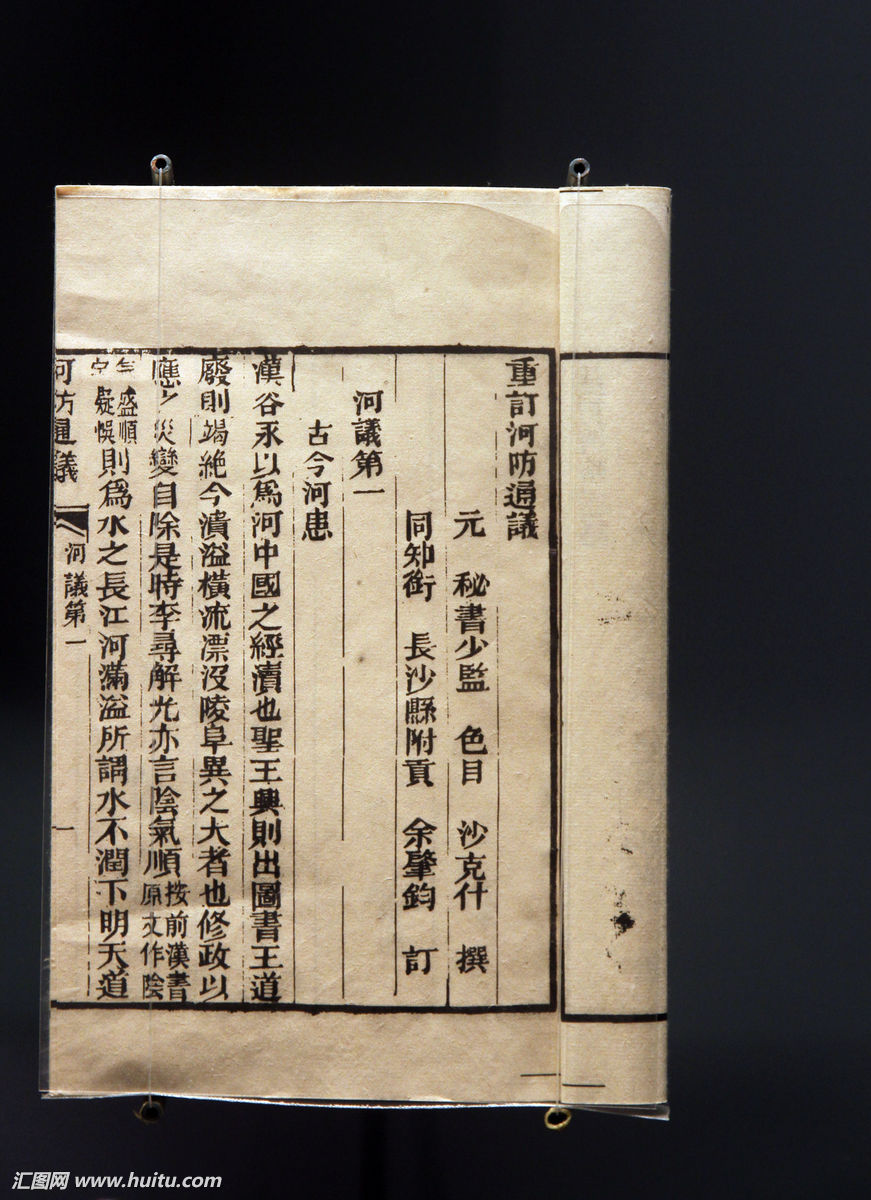 重訂河防通議
元 秘書少監 色目 沙克什 撰
同知銜 長沙縣附貢 余肇鈞 訂
河議第一
古今河患
漢谷永以爲河中國之經瀆也聖王興則出圖書王道
廢則竭絶今潰溢橫流漂沒陵阜異之大者也修政以
應之災變自除是時李尋解光亦言陰氣順按前漢書原文作陰
氣盛順疑悞則爲水之長江河滿溢所謂水不潤下明天道
河防通議 河議第一 一
汇图网 www.huitu.com